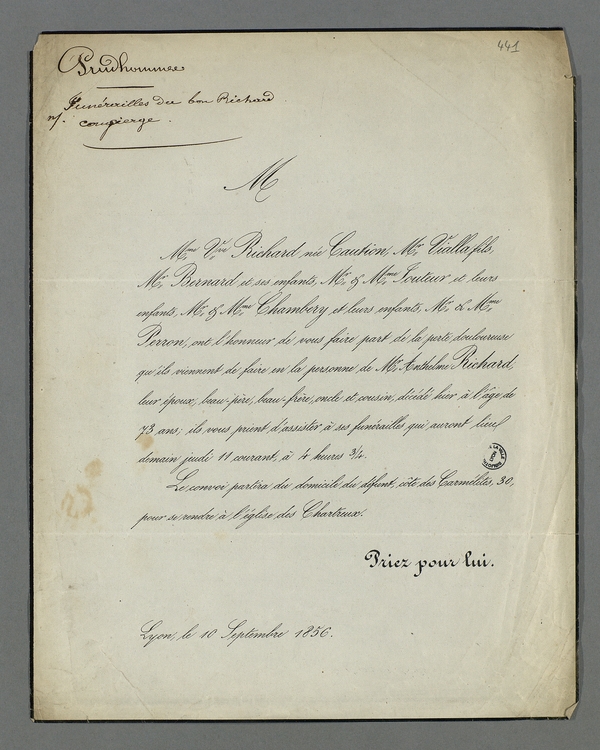 441
Prudhommee
Funérailles du bon Richard
concierge.
M
Mme Vve Richard née Caution, Mr. Vialla fils,
Mr. Bernard et ses enfants, Mr. & Mme Jouteur et leurs
enfants, Mr. & Mme Chambery et leurs enfants, Mr. & Mme
Perron, ont l'honneur de vous faire part de la perte douloureuse
qu'ils viennent de faire en la personne de Mr. Anthelme Richard,
leur époux, beau-père, beau-frère, oncle et cousin, décédé hier à l'âge de
73 ans; ils vous prient d'assister à ses funérailles qui auront lieu
demain jeudi 11 courant, à 4 heures 3/4.
Le convoi partira du domicile du défunt, côte des Carmélites, 30,
pour se rendre à l'église des Chartreux.
Priez pour lui.
Lyon, le 10 Septembre 1856.